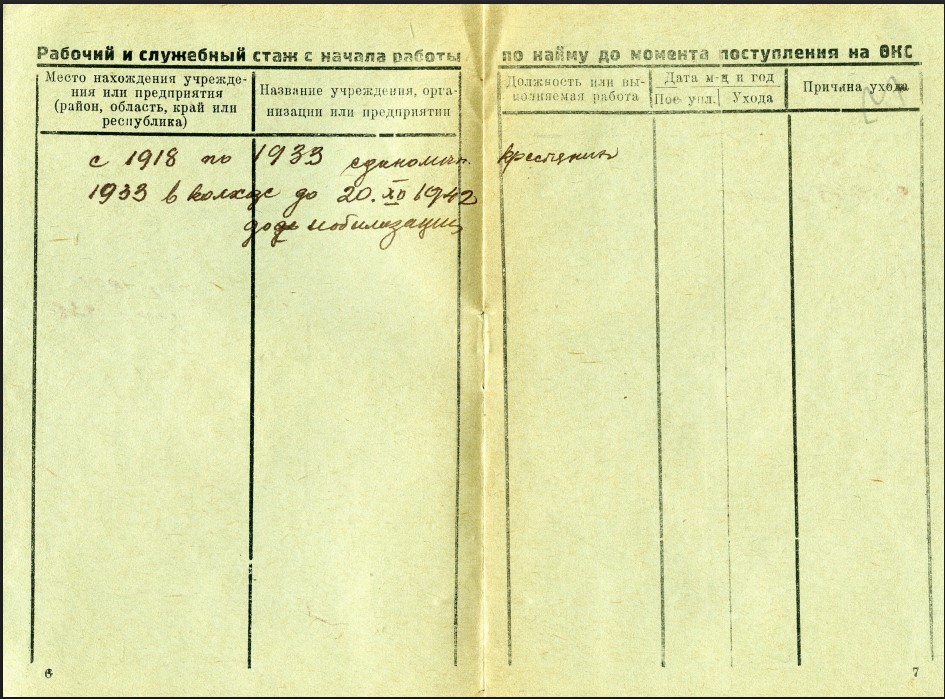 Рабочий и служебный стаж с начала работы по найму до момента поступления на ОКС
Место нахождения учрежде-
ния или предприятия
(район, область, край или
республика)
Название учреждения, орга-
низации или предприятия
Должность или вы-
полняемая работа
Дата м-ц и год
Поступл.
Ухода
Причина ухода
с 1918 по 1933 единолич. крестянин
1933 в колхозе до 20. XII 1942
до мобилизации
6
7